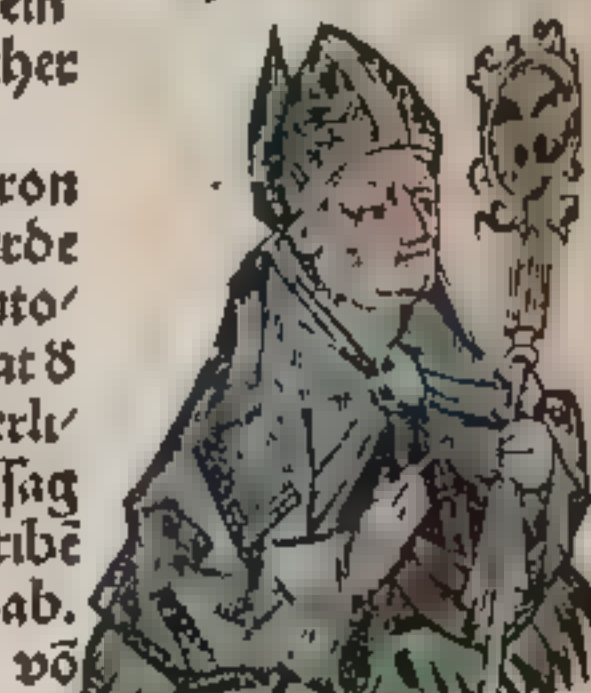 ein
cher
ron
rde
uto/
at ð
erli/
ssag
ribē
ab.
võ